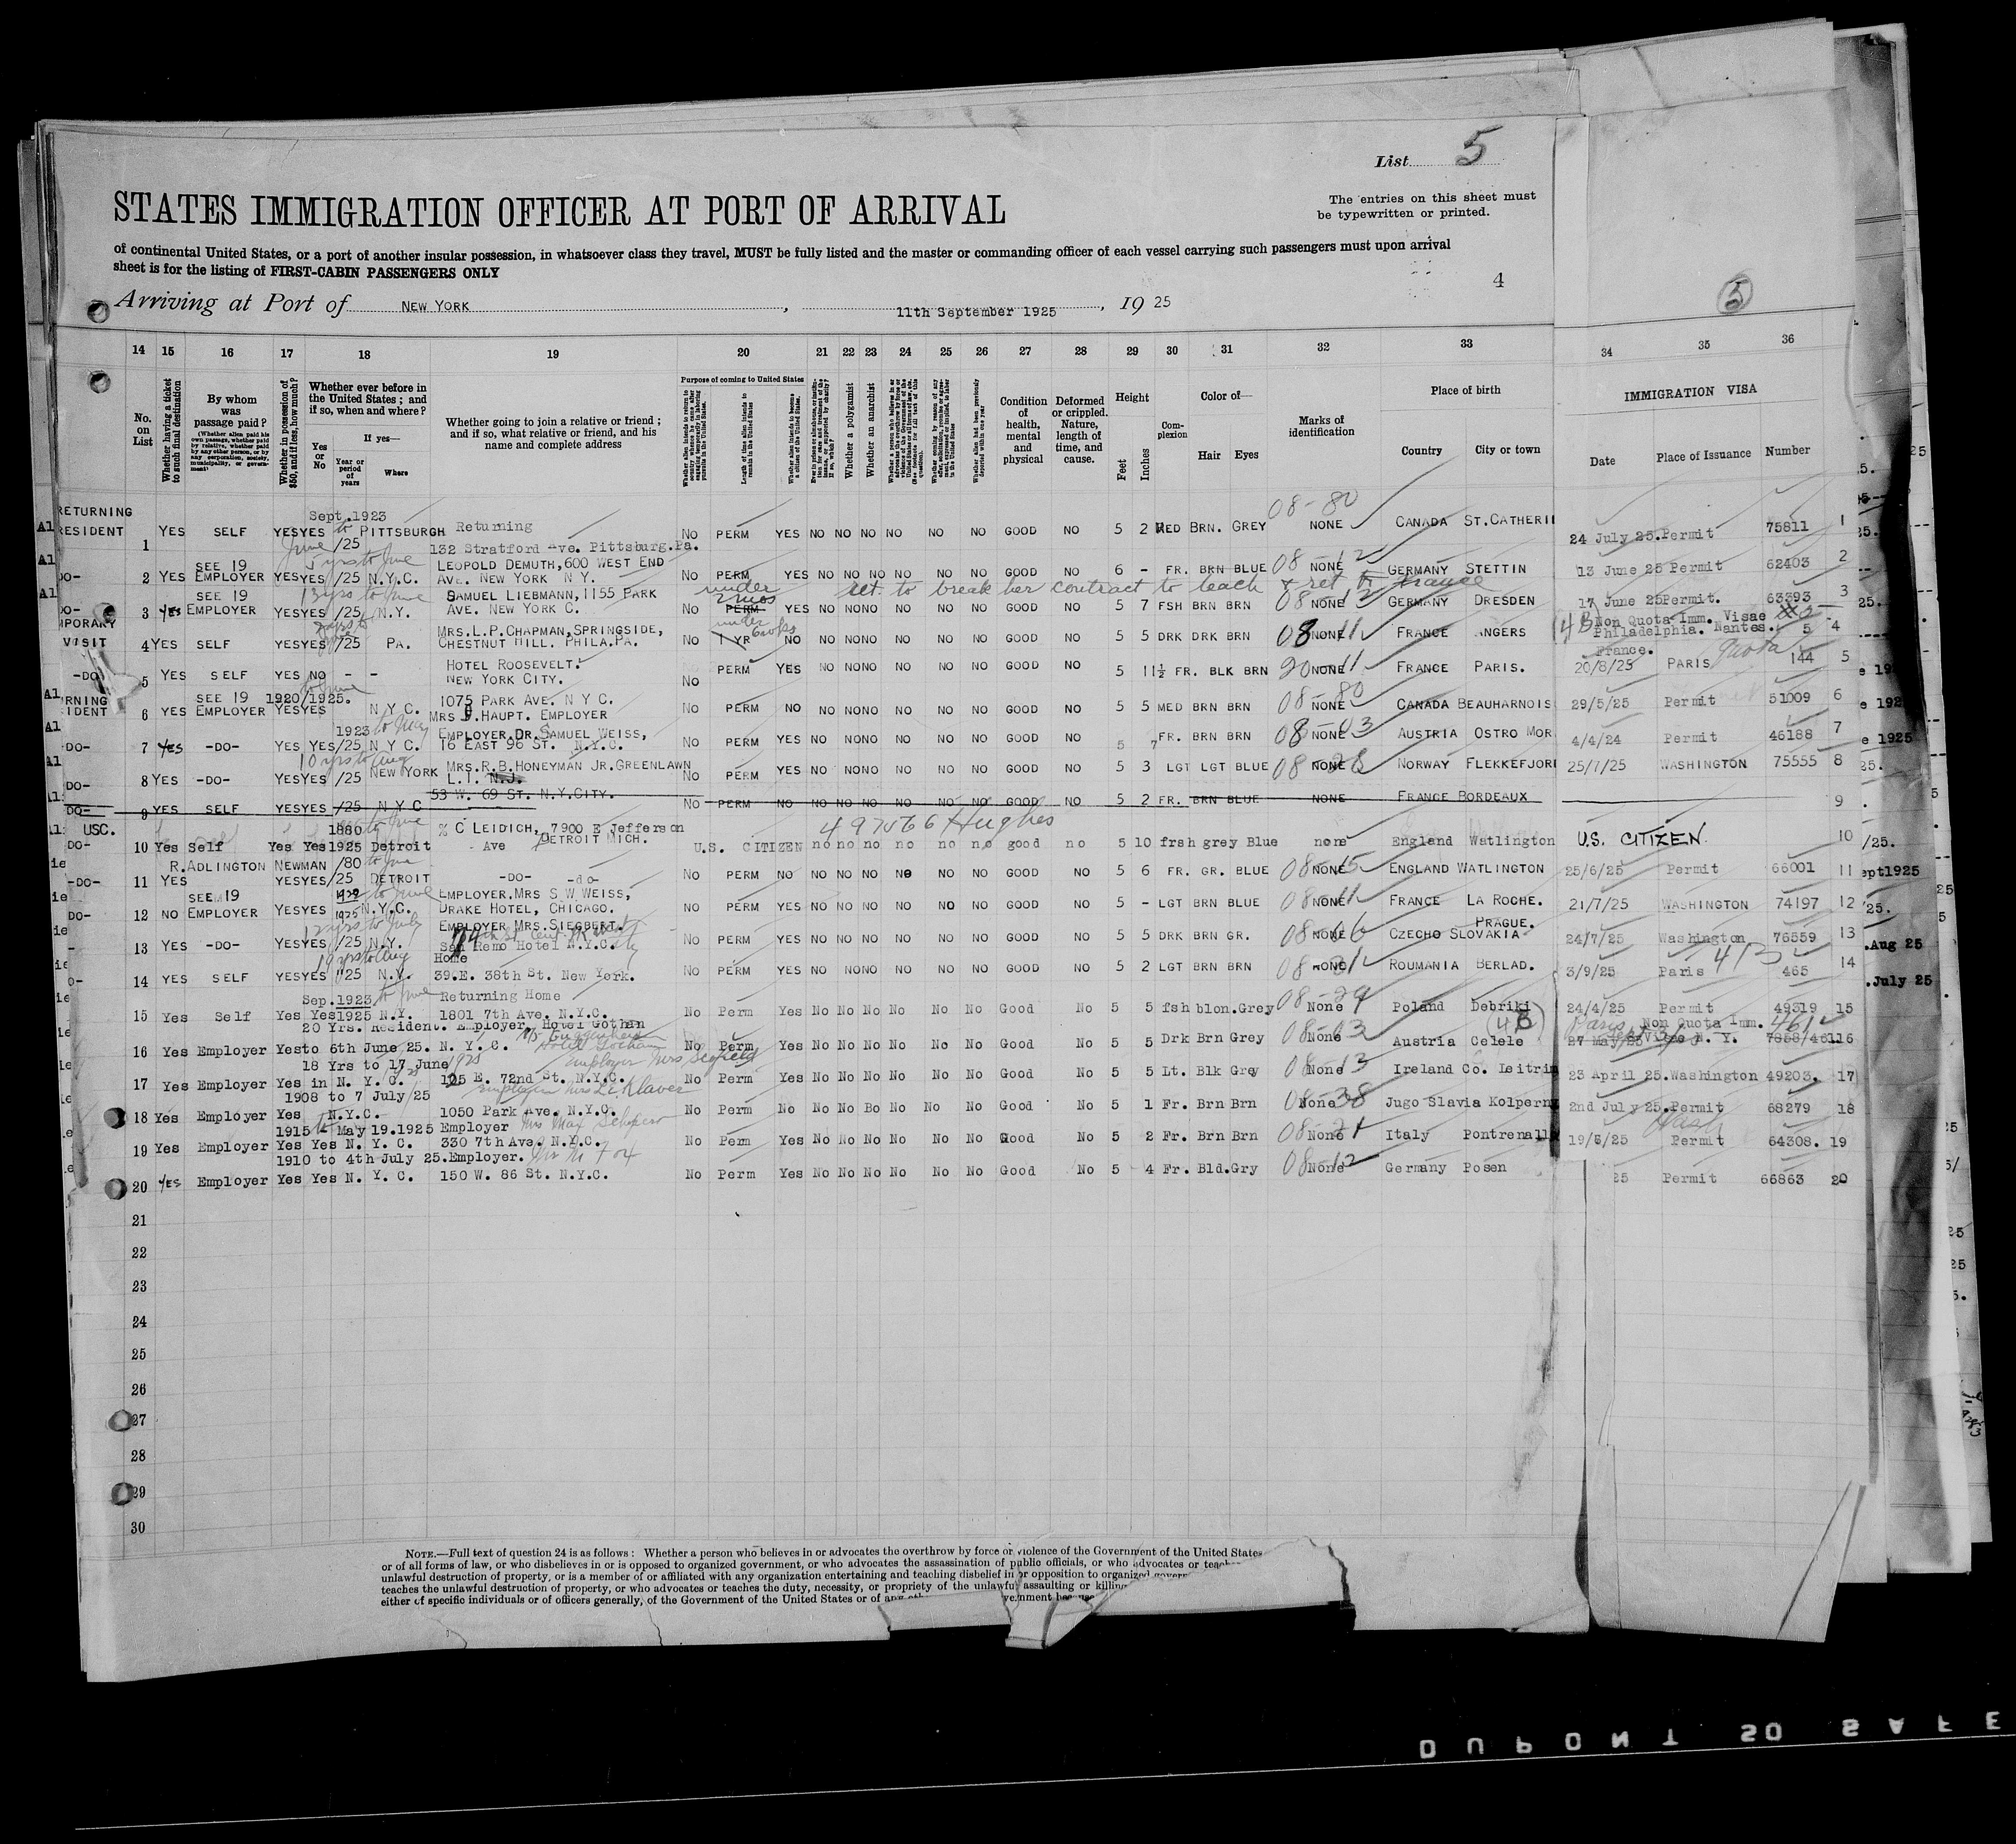 List 5
STATES IMMIGRATION OFFICER AT PORT OF ARRIVAL
The entries on this sheet must
be typewritten or printed.
of continental United States, or a port of another insular possession, in whatsoever class they travel, MUST be fully listed and the master or commanding officer of each vessel carrying such passengers must upon arrival
sheet is for the listing of FIRST-CABIN PASSENGERS ONLY
4
5
Arriving at Port of NEW YORK, 11th September 1925, 19 25
14 15 16 17 18 19 20 21 22 23 24 25 26 27 28 29 30 31 32 33 34 35 36
No. on List
Whether having a ticket to such final destination
By whom was passage paid?
(Whether alien paid his own passage, whether paid by relative, whether paid by any other person, or by any corporation, society, municipality, or government)
Whether in possession of $50, and if less, how much?
Whether ever before in the United States; and if so, when and where?
Yes or No
If yes—
Year or period of years
Where
Whether going to join a relative or friend; and if so, what relative or friend, and his name and complete address
Purpose of coming to United States
Length of time alien intends to remain in the United States
Whether alien intends to become a citizen of the United States
Whether a polygamist
Whether an anarchist
Condition of health, mental and physical
Deformed or crippled. Nature, length of time, and cause.
Height
Feet
Inches
Complexion
Color of—
Hair Eyes
Marks of identification
Place of birth
Country City or town
IMMIGRATION VISA
Date Place of Issuance Number
RETURNING
RESIDENT 1 YES SELF YES YES Sept.1923 to June /25 PITTSBURGH Returning
132 Stratford Ave. Pittsburg.Pa. No PERM YES NO NO NO NO NO NO GOOD NO 5 2 MED BRN. GREY NONE 08-80 CANADA ST.CATHERI 24 July 25. Permit 75811 1
DO- 2 YES SEE 19 EMPLOYER YES YES 5 yrs to June /25 N.Y.C. LEOPOLD DEMUTH, 600 WEST END
AVE. NEW YORK N Y. No PERM YES NO NO NO NO NO NO GOOD NO 6 - FR. BRN BLUE 08 NONE 12 GERMANY STETTIN 13 June 25 Permit 62403 2
DO- 3 YES SEE 19 EMPLOYER YES YES 13 yrs to June /25 N.Y. SAMUEL LIEBMANN, 1155 PARK
AVE. NEW YORK C. No PERM YES NO NO NO NO NO NO GOOD NO 5 7 FSH BRN BRN 08 NONE 12 GERMANY DRESDEN 17 June 25 Permit. 63393 3
under 2 mos ret. to break her contract to teach & ret to France
MPORARY
VISIT 4 YES SELF YES YES /25 PA. MRS. L.P. CHAPMAN, SPRINGSIDE,
CHESTNUT HILL. PHILA. PA. No 1 YR under 6 wks NO NO NO NO NO NO NO GOOD NO 5 5 DRK DRK BRN 08 NONE 11 FRANCE ANGERS 4B Non Quota Imm. Visae
Philadelphia. Nantes. 5 4
France.
-DO 5 YES SELF YES NO - - HOTEL ROOSEVELT.
NEW YORK CITY. No PERM YES NO NO NO NO NO NO GOOD NO 5 11½ FR. BLK BRN 20 NONE 11 FRANCE PARIS. 20/8/25 PARIS Quota 144 5
RNING
IDENT 6 YES SEE 19 EMPLOYER YES YES 1920 to June /1925. N Y C. 1075 PARK AVE. N Y C.
MRS J. HAUPT. EMPLOYER No PERM NO NO NO NO NO NO NO GOOD NO 5 5 MED BRN BRN 08 NONE 80 CANADA BEAUHARNOIS 29/5/25 Permit 51009 6
-DO- 7 YES -DO- YES YES 1923 to May /25 N Y C. EMPLOYER, DR. SAMUEL WEISS,
16 EAST 96 ST. N.Y.C. No PERM YES NO NO NO NO NO NO GOOD NO 5 7 FR. BRN BRN 08 NONE 03 AUSTRIA OSTRO MOR 4/4/24 Permit 46188 7
DO- 8 YES -DO- YES YES 10 yrs to Aug /25 NEW YORK MRS. R.B. HONEYMAN JR. GREENLAWN
L.I. N.J. No PERM YES NO NO NO NO NO NO GOOD NO 5 3 LGT LGT BLUE 08 NONE 26 NORWAY FLEKKEFJOR 25/7/25 WASHINGTON 75555 8
DO- 9 YES SELF YES YES /25 N Y C 53 W. 69 ST. N.Y.CITY. No PERM NO NO NO NO NO NO NO GOOD NO 5 2 FR. BRN BLUE NONE FRANCE BORDEAUX 9
USC.
DO- 10 Yes Self Yes Yes 1880 to June 1925 Detroit % C LEIDICH, 7900 E Jefferson
Ave DETROIT MICH. 497566 Hughes
U.S. CITIZEN no no no no no no good no 5 10 frsh grey Blue none England Watlington U.S. CITIZEN 10
-DO- 11 YES R. ADLINGTON NEWMAN YES YES /80 to June /25 DETROIT -DO- -do- No PERM NO NO NO NO NO NO NO GOOD NO 5 6 FR. GR. BLUE 08 NONE 15 ENGLAND WATLINGTON 25/6/25 Permit 66001 11
DO- 12 NO SEE 19 EMPLOYER YES YES 1922 to June 1925 N.Y.C. EMPLOYER. MRS S W WEISS,
DRAKE HOTEL, CHICAGO. NO PERM YES NO NO NO NO NO NO GOOD NO 5 - LGT BRN BLUE 08 NONE 11 FRANCE LA ROCHE. 21/7/25 WASHINGTON 74197 12
13 YES -DO- YES YES 12 yrs to July /25 N.Y. EMPLOYER MRS. SIEGBERT.
San Remo Hotel N.Y.C. No PERM YES NO NO NO NO NO NO GOOD NO 5 5 DRK BRN GR. 08 NONE 16 CZECHO SLOVAKIA PRAGUE. 24/7/25 Washington 76559 13
14 YES SELF YES YES 19 yrs to Aug '25 N.Y. Home
39.E. 38th St. New York. No PERM YES NO NO NO NO NO NO GOOD NO 5 2 LGT BRN BRN 08 NONE 31 ROUMANIA BERLAD. 3/9/25 Paris 4B 465 14
15 Yes Self Yes Yes Sep.1923 to June 1925 N.Y. Returning Home
1801 7th Ave. N.Y.C. No Perm Yes No No No No No No Good No 5 5 fsh blon. Grey 08-29 None Poland Debriki 24/4/25 Permit 49319 15
20 Yrs. Resident. Employer, Hotel Gotham
16 Yes Employer Yes to 6th June 25. N. Y. C. No Perm Yes No No No No No No Good No 5 5 Drk Brn Grey 08-03 None Austria Celele 4B Paris Non Quota Imm.
27 May/25 Visae N. Y. 16
18 Yrs to 17 June 1925 Employer Mrs
17 Yes Employer Yes in N. Y. C. 125 E. 72nd St. N.Y.C. No Perm Yes No No No No No No Good No 5 5 Lt. Blk Grey 08-13 None Ireland Co. Leitrim 23 April 25. Washington 49203. 17
1908 to 7 July/25
18 Yes Employer Yes N.Y.C. 1050 Park Ave. N.Y.C. No Perm No No No Bo No No No Good No 5 1 Fr. Brn Brn None 38 Jugo Slavia Kolperny 2nd July 25. Permit 68279 18
1915 to May 19.1925 Employer Mrs Max
19 Yes Employer Yes Yes N. Y. C. 330 7th Ave. N.Y.C. No Perm Yes No No No No No No Good No 5 2 Fr. Brn Brn 08-21 None Italy Pontremall 19/5/25 Permit Wash 64308. 19
1910 to 4th July 25. Employer. Mrs M Fox
20 YES Employer Yes Yes N. Y. C. 150 W. 86 St. N.Y.C. No Perm Yes No No No No No No Good No 5 4 Fr. Bld. Gry 08-12 None Germany Posen 25 Permit 66863 20
21
22
23
24
25
26
27
28
29
30
NOTE.—Full text of question 24 is as follows: Whether a person who believes in or advocates the overthrow by force or violence of the Government of the United States
or of all forms of law, or who disbelieves in or is opposed to organized government, or who advocates the assassination of public officials, or who advocates or teach
unlawful destruction of property, or is a member of or affiliated with any organization entertaining and teaching disbelief in or opposition to organized govern
teaches the unlawful destruction of property, or who advocates or teaches the duty, necessity, or propriety of the unlawful assaulting or killing
either of specific individuals or of officers generally, of the Government of the United States or of any other government because
DUPONT 50 SAFE